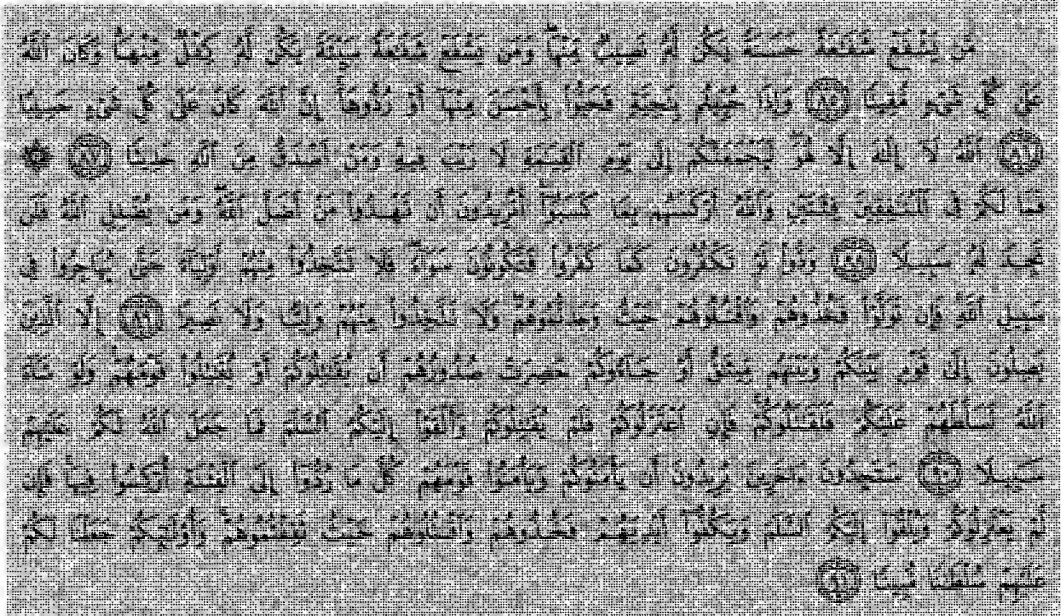 مَّن يَشْفَعْ شَفَٰعَةً حَسَنَةً يَكُن لَّهُۥ نَصِيبٌ مِّنْهَا ۖ وَمَن يَشْفَعْ شَفَٰعَةً سَيِّئَةً يَكُن لَّهُۥ كِفْلٌ مِّنْهَا ۗ وَكَانَ ٱللَّهُ
عَلَىٰ كُلِّ شَىْءٍ مُّقِيتًا ﴿٨٥﴾ وَإِذَا حُيِّيتُم بِتَحِيَّةٍ فَحَيُّوا۟ بِأَحْسَنَ مِنْهَآ أَوْ رُدُّوهَآ ۗ إِنَّ ٱللَّهَ كَانَ عَلَىٰ كُلِّ شَىْءٍ حَسِيبًا
﴿٨٦﴾ ٱللَّهُ لَآ إِلَٰهَ إِلَّا هُوَ ۚ لَيَجْمَعَنَّكُمْ إِلَىٰ يَوْمِ ٱلْقِيَٰمَةِ لَا رَيْبَ فِيهِ ۗ وَمَنْ أَصْدَقُ مِنَ ٱللَّهِ حَدِيثًا ﴿٨٧﴾ ۞
فَمَا لَكُمْ فِى ٱلْمُنَٰفِقِينَ فِئَتَيْنِ وَٱللَّهُ أَرْكَسَهُم بِمَا كَسَبُوٓا۟ ۚ أَتُرِيدُونَ أَن تَهْدُوا۟ مَنْ أَضَلَّ ٱللَّهُ ۖ وَمَن يُضْلِلِ ٱللَّهُ فَلَن
تَجِدَ لَهُۥ سَبِيلًا ﴿٨٨﴾ وَدُّوا۟ لَوْ تَكْفُرُونَ كَمَا كَفَرُوا۟ فَتَكُونُونَ سَوَآءً ۖ فَلَا تَتَّخِذُوا۟ مِنْهُمْ أَوْلِيَآءَ حَتَّىٰ يُهَاجِرُوا۟ فِى
سَبِيلِ ٱللَّهِ ۚ فَإِن تَوَلَّوْا۟ فَخُذُوهُمْ وَٱقْتُلُوهُمْ حَيْثُ وَجَدتُّمُوهُمْ ۖ وَلَا تَتَّخِذُوا۟ مِنْهُمْ وَلِيًّا وَلَا نَصِيرًا ﴿٨٩﴾ إِلَّا ٱلَّذِينَ
يَصِلُونَ إِلَىٰ قَوْمٍۭ بَيْنَكُمْ وَبَيْنَهُم مِّيثَٰقٌ أَوْ جَآءُوكُمْ حَصِرَتْ صُدُورُهُمْ أَن يُقَٰتِلُوكُمْ أَوْ يُقَٰتِلُوا۟ قَوْمَهُمْ ۚ وَلَوْ شَآءَ
ٱللَّهُ لَسَلَّطَهُمْ عَلَيْكُمْ فَلَقَٰتَلُوكُمْ ۚ فَإِنِ ٱعْتَزَلُوكُمْ فَلَمْ يُقَٰتِلُوكُمْ وَأَلْقَوْا۟ إِلَيْكُمُ ٱلسَّلَمَ فَمَا جَعَلَ ٱللَّهُ لَكُمْ عَلَيْهِمْ
سَبِيلًا ﴿٩٠﴾ سَتَجِدُونَ ءَاخَرِينَ يُرِيدُونَ أَن يَأْمَنُوكُمْ وَيَأْمَنُوا۟ قَوْمَهُمْ كُلَّ مَا رُدُّوٓا۟ إِلَى ٱلْفِتْنَةِ أُرْكِسُوا۟ فِيهَا ۚ فَإِن
لَّمْ يَعْتَزِلُوكُمْ وَيُلْقُوٓا۟ إِلَيْكُمُ ٱلسَّلَمَ وَيَكُفُّوٓا۟ أَيْدِيَهُمْ فَخُذُوهُمْ وَٱقْتُلُوهُمْ حَيْثُ ثَقِفْتُمُوهُمْ ۚ وَأُو۟لَٰٓئِكُمْ جَعَلْنَا لَكُمْ
عَلَيْهِمْ سُلْطَٰنًا مُّبِينًا ﴿٩١﴾